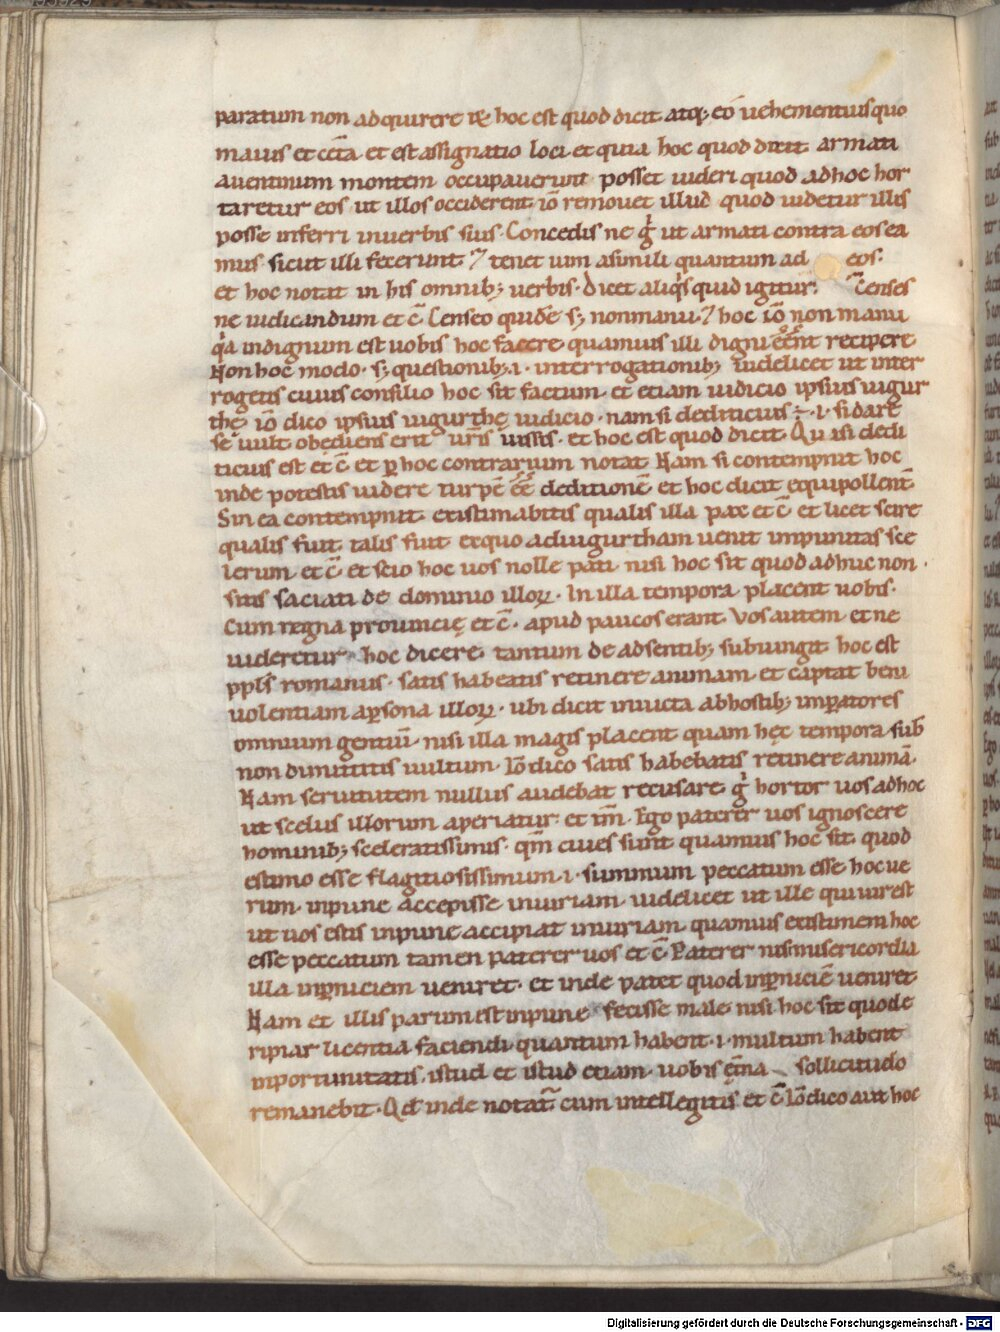 paratum non adquirere rē. hoc est quod dicit atq; eo uehementius quo
maius et cetā. et est assignatio loci. et quia hoc quod dicit armati
auentinum montem occupauerunt posset uideri quod adhoc hor
taretur eos ut illos occiderent. iō remouet illud quod uidetur illis
posse inferri inuerbis suis. Concedis ne g̊ ut armati contra eos ea
mus sicut illi fecerunt. ⁊ tenet uim asimili quantum ad eos.
et hoc notat in his omnib; uerbis. Dicet aliq̇s quid igitur. Censes
ne uidicandum et c̄. Censeo quidē s; nonmanu. ⁊ hoc iō non manu
q̇a indignum est uobis hoc facere quamuis illi digni eēnt recipere
Non hoc modo. s; questionib; .i. interrogationib; uidelicet ut inter
rogetis cuius consilio hoc sit factum. et etiam iudicio ipsius iugur
thę. iō dico ipsius iugurthę iudicio. nam si dediticius ÷ .i. si dare
se uult obediens erit uris̄ iussis. et hoc est quod dicit. Qui si dedi
ticius est et c̄. et p hoc contrarium notat. Nam si contempnit hoc
inde potestis uidere turpē eē deditionē. et hoc dicit equipollent̄
Sin ea contempnit. existimabitis qualis illa pax et c̄. et licet scire
qualis fuit. talis fuit. exquo adiugurtham uenit impunitas sce
lerum. et c̄. et scio hoc uos nolle pati. nisi hoc sit quod adhuc non.
sitis saciati de dominio illoꝝ. In illa tempora placent uobis.
Cum regna prouincię et c̄. apud paucos erant. Vos autem et ne
uideretur hoc dicere tantum de adsentib; subiungit hoc est
ppls̄ romanus. satis habeatis retinere animam. et captat beni
uolentiam apsona illoꝝ. ubi dicit inuicta abhostib; impatores
omnium gentiū. nisi illa magis placent quam hęc tempora. sub̄
non dimittitis uultum. Iō dico satis habebatis retinere animā.
Nam seruitutem nullus audebat recusare. g̊ hortor uos adhoc
ut scelus illorum aperiatur. et im̄. Ego paterer uos ignoscere
hominib; sceleratissimis. qm̄ ciues sunt quamuis hoc sit. quod
estimo esse flagitiosissimum .i. summum peccatum esse hoc ue
rum. inpune accepisse iniuriam. uidelicet ut ille qui uir est
ut uos estis inpune accipiat iniuriam. quamuis existimem hoc
esse peccatum tamen paterer uos et c̄. Paterer nisi misericordia
illa inpniciem ueniret. et inde patet quod inpniciē ueniret.
Nam et illis parum est inpune fecisse male nisi hoc sit quod e
ripiar licentia faciendi. quantum habent .i. multum habent
inportunitatis. istud et istud etiam. uobis ęt̄na sollicitudo
remanebit. Qd̄ inde notat̄. cum intellegitis et c̄. Iō dico aut hoc
Digitalisierung gefördert durch die Deutsche Forschungsgemeinschaft - DFG